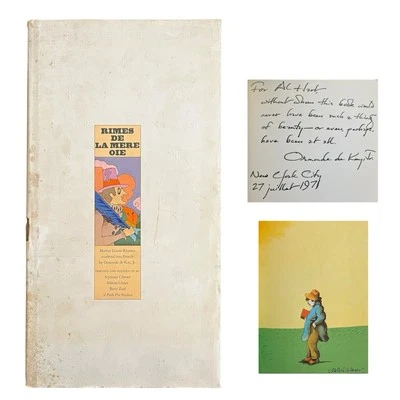 RIMES
DE
LA MERE
OIE
Mother Goose Rhymes
rendered into French
by Ormonde de Kay, Jr.
Seymour Chwast
Milton Glaser
Barry Zaid
of Push Pin Studios
For Al Hart
without whom this book would
never have been such a thing
of beauty—or even, perhaps,
have been at all
Ormonde de Kay, Jr.
New York City
27 juillet 1971